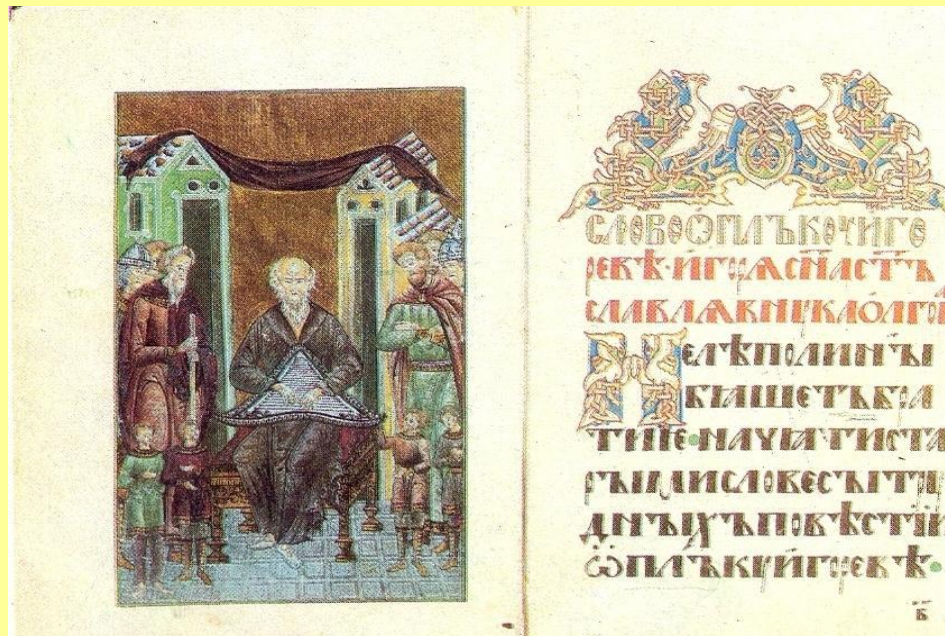 СЛОВООПЛЪКОЧИГО
РЕВѢ·ИГОРАСНАСТЪ
СЛАВЛАВНꙊКАОЛГО
НЕЛѢПОЛИНЫ
БꙖШЕТЪБРА
ТИІЕ·НАЧꙖТИСТА
РЫМИСЛОВЕСЫТРꙊ
ДНЫХЪПОВѢСТИИ
ѾПЛЪКꙊИГОРЕВѢ·
в҃